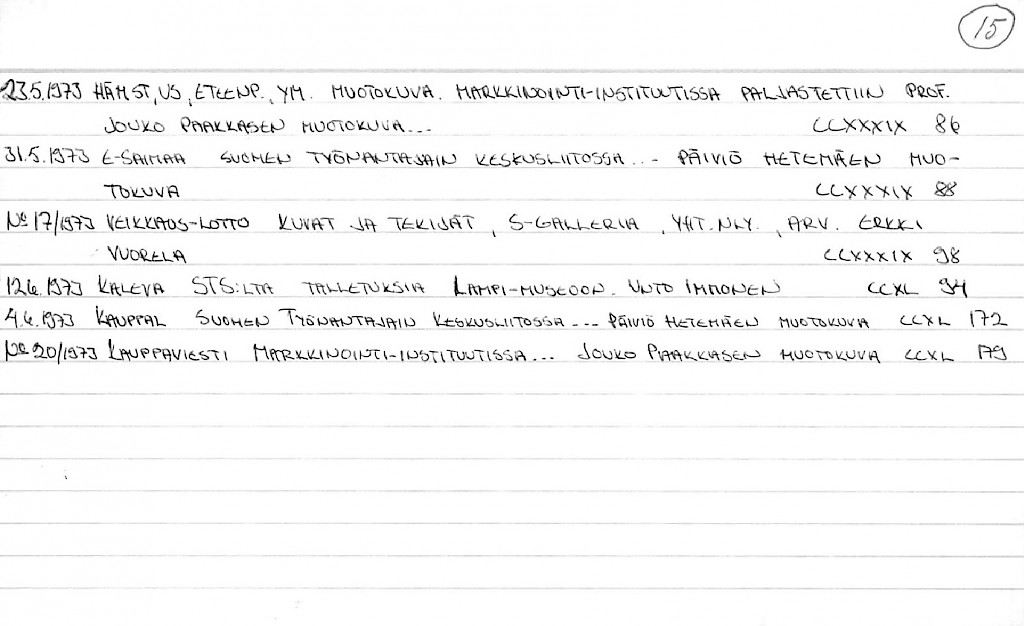 15
23.5.1973 HÄMST, US, ETEENP., YM. MUOTOKUVA. MARKKINOINTI-INSTITUUTISSA PALJASTETTIIN PROF.
JOUKO PAAKKASEN MUOTOKUVA... CCXXXIX 86
31.5.1973 E-SAIMAA SUOMEN TYÖNANTAJAIN KESKUSLIITOSSA... - PÄIVIÖ HETEMÄEN MUO-
TOKUVA CCXXXIX 88
No 17/1973 VEIKKAUS-LOTTO KUVAT JA TEKIJÄT, S-GALLERIA, YHT.NLY., ARV. ERKKI
VUORELA CCXXXIX 98
12.6.1973 KALEVA STS:LTA TALLETUKSIA LAMPI-MUSEOON. UNTO IMMONEN CCXL 94
4.6.1973 KAUPPAL SUOMEN TYÖNANTAJAIN KESKUSLIITOSSA... PÄIVIÖ HETEMÄEN MUOTOKUVA CCXL 172
No 20/1973 KAUPPAVIESTI MARKKINOINTI-INSTITUUTISSA... JOUKO PAAKKASEN MUOTOKUVA CCXL 179